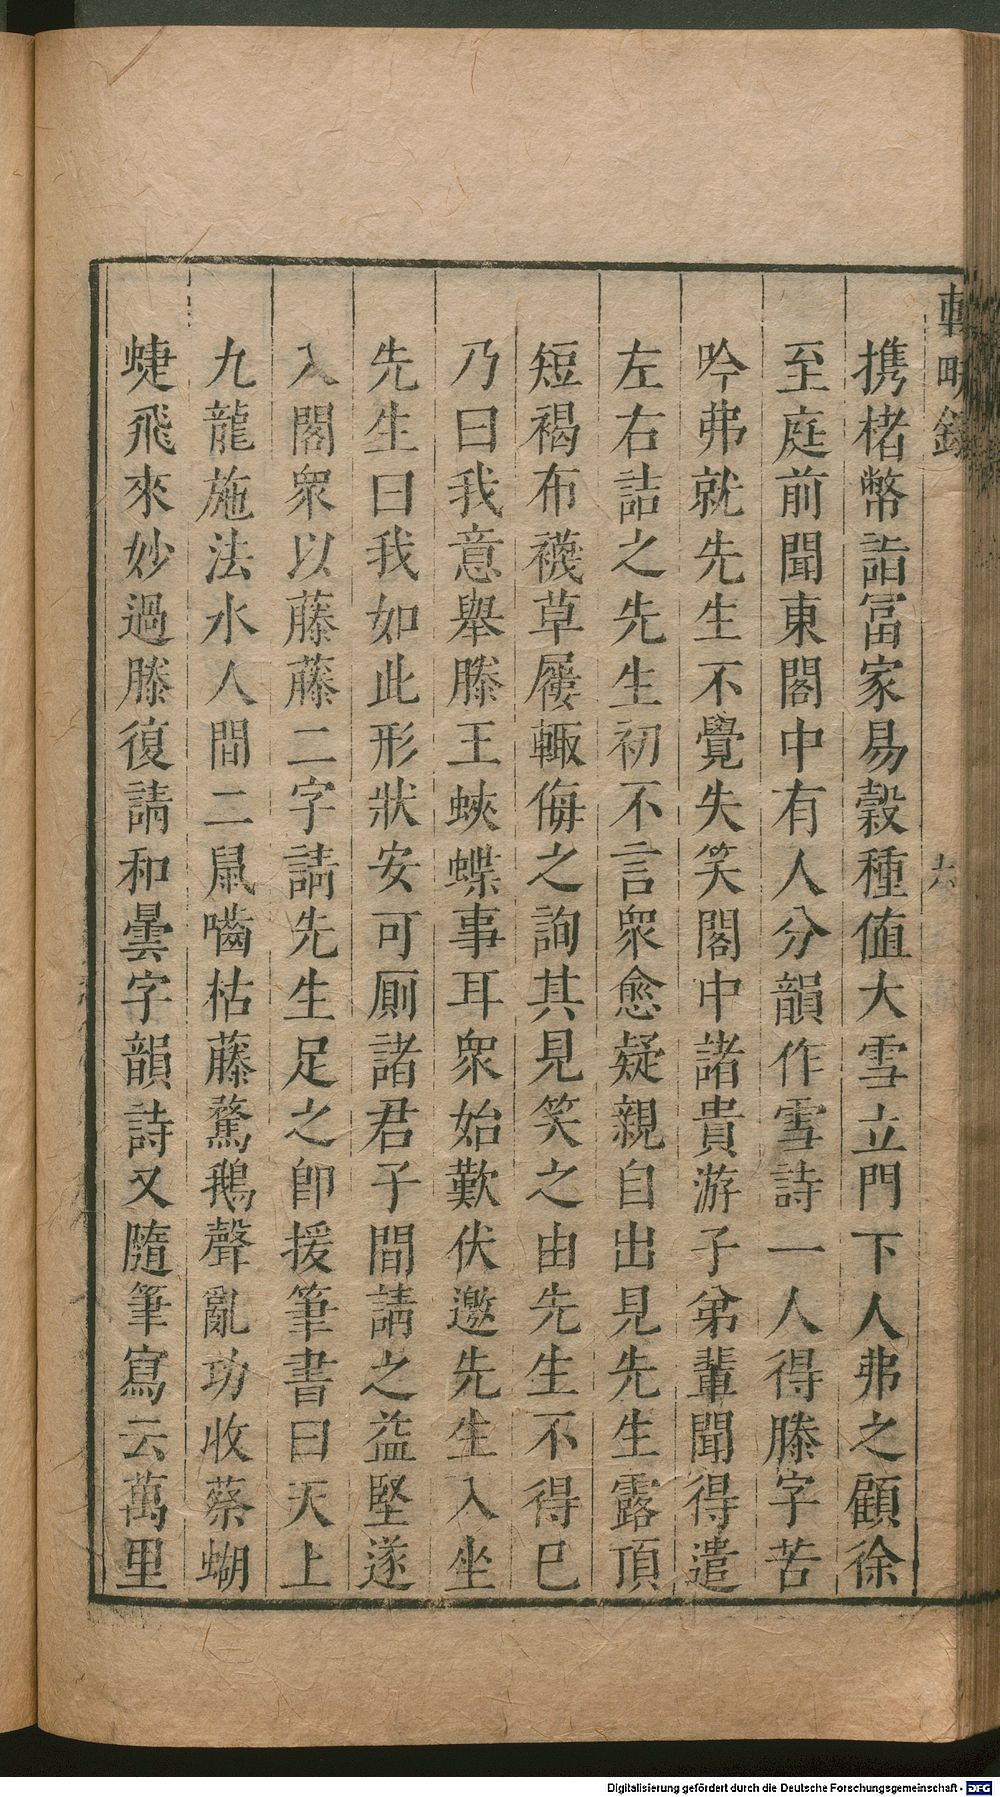 攜楮幣詣冨家易穀種值大雪立門下人弗之顧徐
至庭前聞東閣中有人分韻作雪詩一人得滕字苦
吟弗就先生不覺失笑閣中諸貴游子弟輩聞得遣
左右詰之先生初不言眾愈疑親自出見先生露頂
短褐布襪草屨輙侮之詢其見笑之由先生不得已
乃曰我意舉滕王蛺蝶事耳眾始歎伏邀先生入坐
先生曰我如此形狀安可厠諸君子間請之益堅遂
入閣眾以藤藤二字請先生足之即援筆書曰天上
九龍施法水人間二鼠嚙枯藤驚鵝聲亂功收蔡蝴
蜨飛來妙過滕復請和曇字韻詩又隨筆寫云萬里
Digitalisierung gefördert durch die Deutsche Forschungsgemeinschaft - DFG